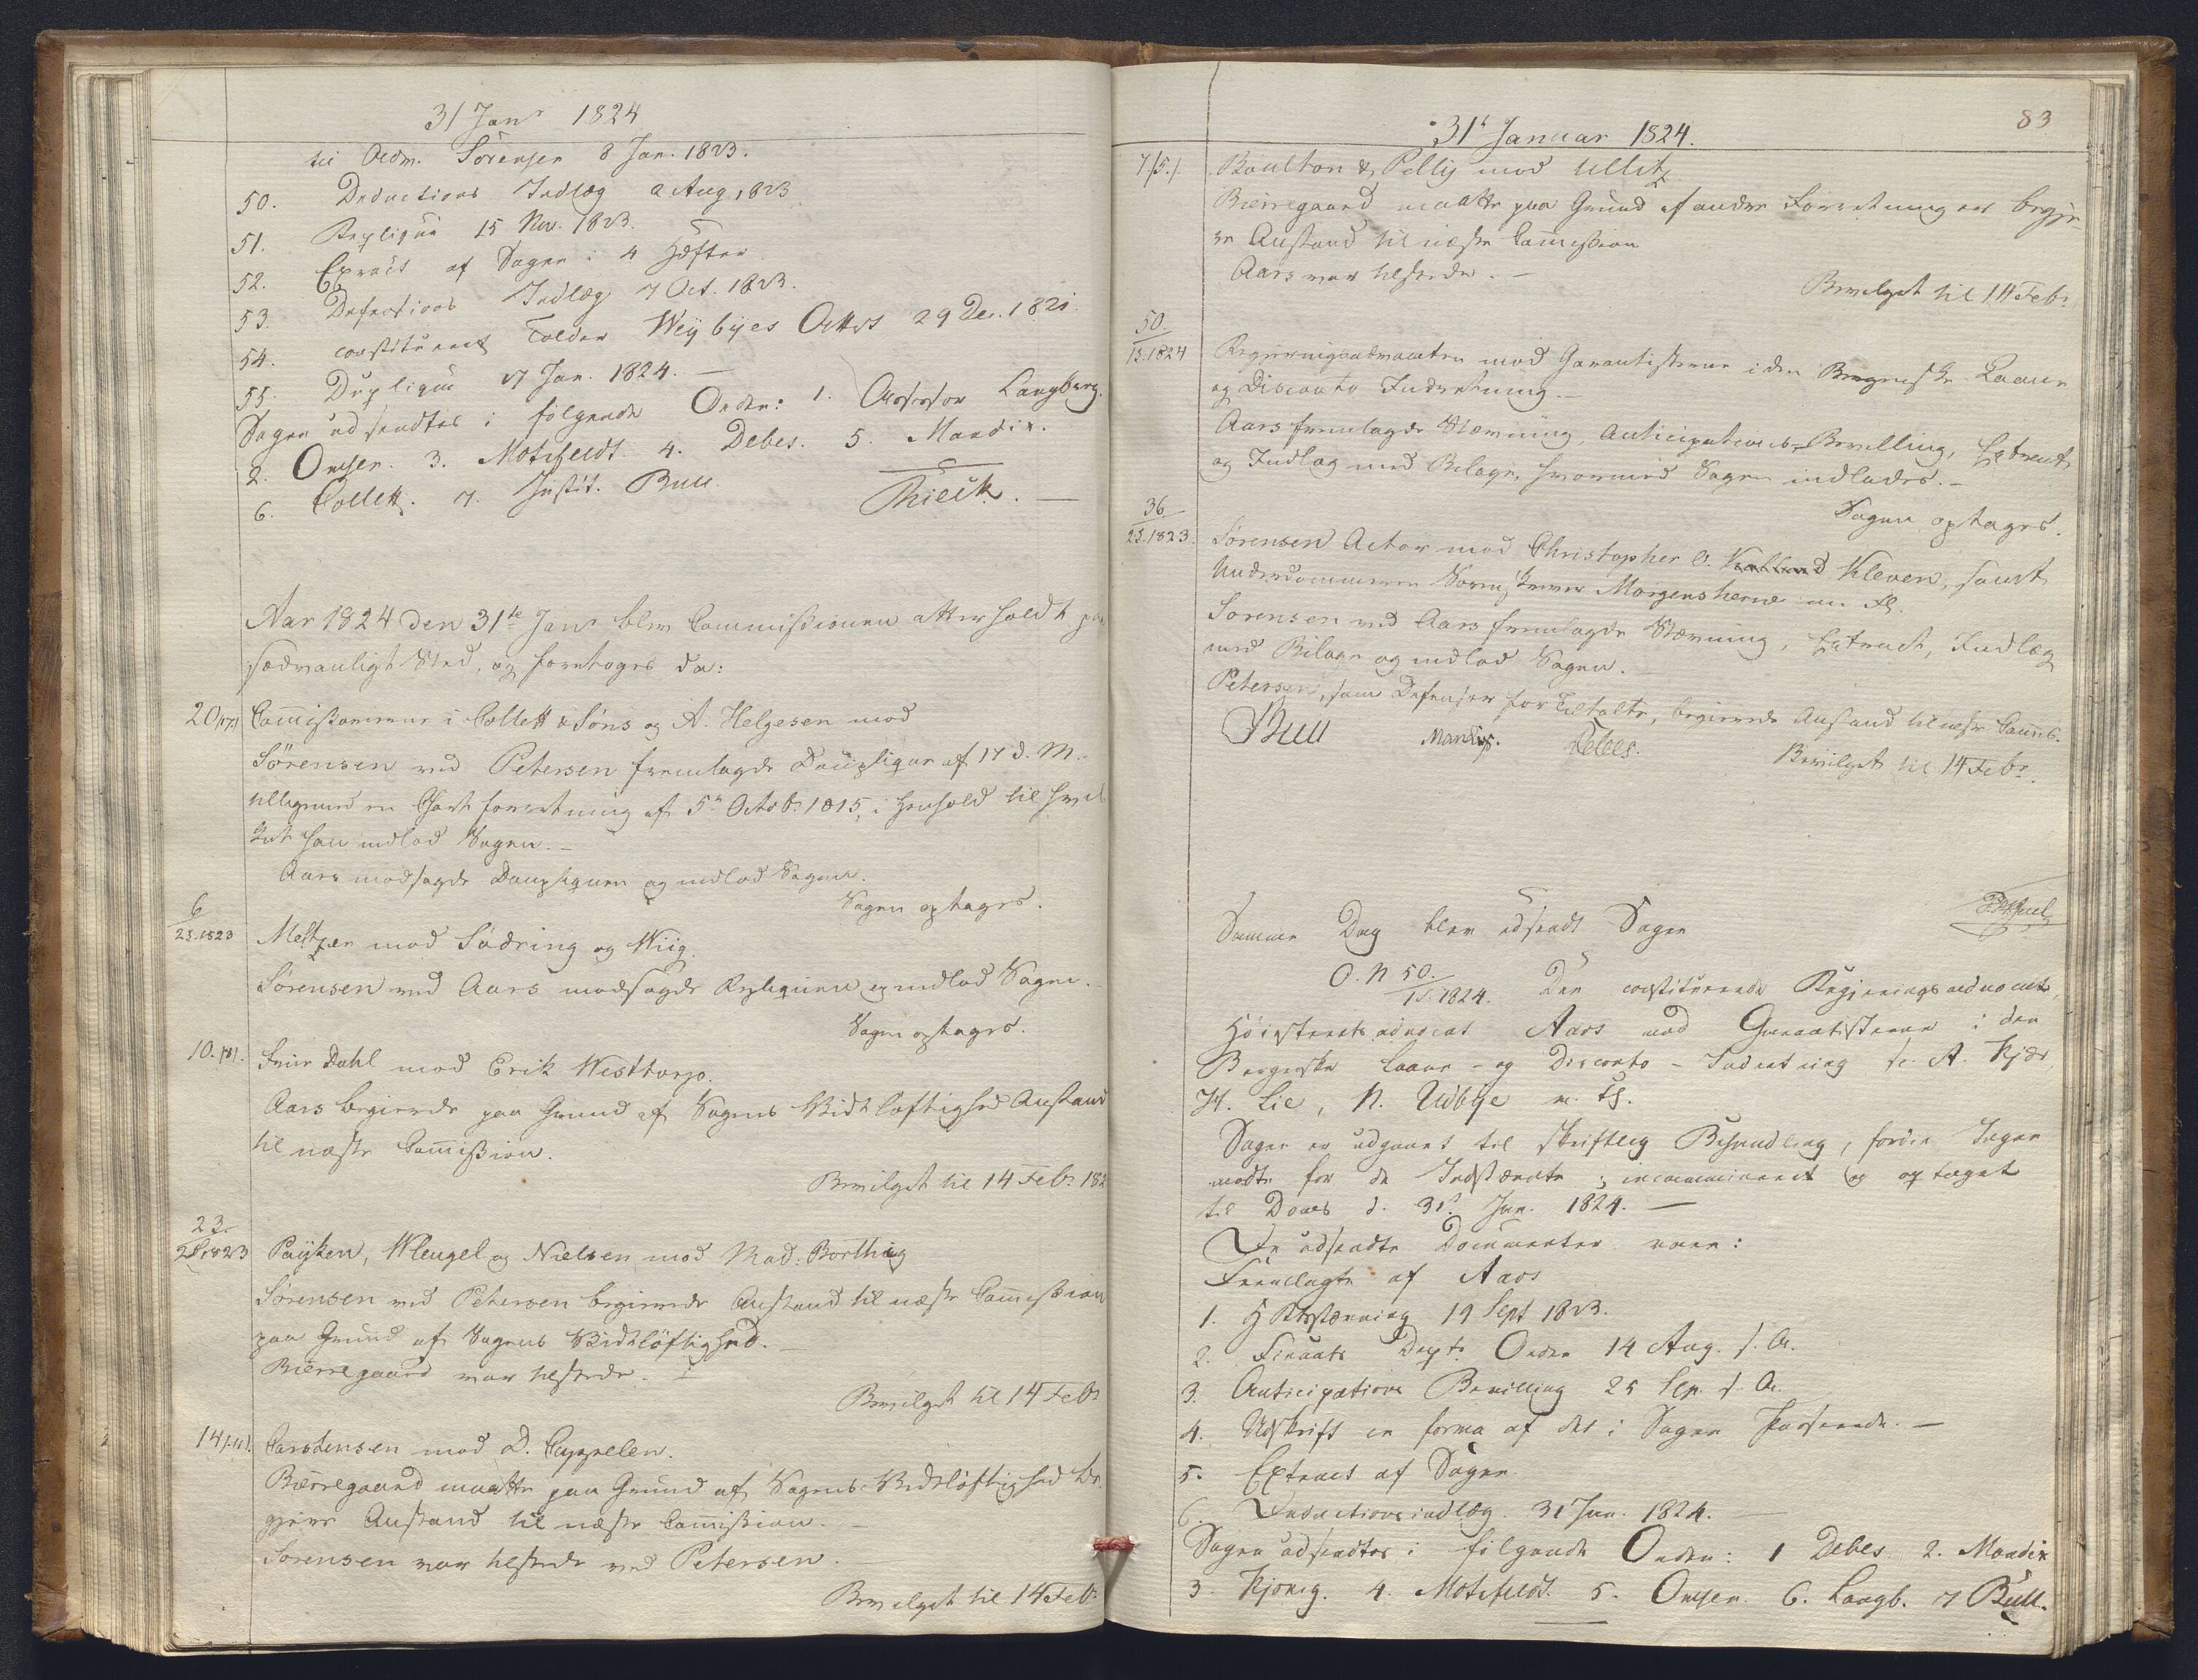 31 Janr 1824
til Adv. Sörensen 8 Jan. 1823.
50. Deductions Indlæg 2 Aug. 1823
51. Repliqve 15 Nov. 1823.
52. Extract af Sagen i 4 Hefter.
53. Defensions Indlæg 7 Oct. 1823.
54. constitueret Tolder Weybyes Attest 29 Dec. 1821.
55. Dupliqve 17 Jan. 1824. —
Sagen udsendtes i følgende Orden: 1. Assessor Langberg.
2. Omsen. 3. Motzfeldt. 4. Debes. 5. Mandix.
6. Collett. 7. Justit. Bull.
Thieck. —
Aar 1824 den 31te Janr blev Commissionen atter holdt paa
sædvanligt Sted, og foretoges da:
20/17/ Commissionen i Collett & Söns og A. Helgesen mod
Sörensen ved Petersen fremlagde Duupliqve af 17 d. M.
tilligemed en forretning af 5te Octob: 1815, i Henhold til hvil
ket han indlod Sagen. —
Aars modsagde Duupliqven og indlod Sagen.
Sagen optages.
6
23.1823 Meltzer mod Södring og Wiig.
Sörensen ved Aars modsagde Repliqven og indlod Sagen. —
Sagen optages.
10./18/. Dahl mod Erik Westtorp.
Aars begierede paa Grund af Sagens Vidtløftighed Anstand
til næste Commission.
Bevilget til 14 Febr. 182
23.
25.1823 Paÿken, Kleugel og Nielsen mod Mad: Borthig
Sörensen ved Petersen begierede Anstand til næste Commission
paa Grund af Sagens Vidtløftighed. —
Bierregaard var tilstede.
Bevilget til 14 Febr
14/11/. Carstensen mod D. Cappelen.
Bierregaard maatte paa Grund af Sagens Vidtløftighed be
giere Anstand til næste Commission. —
Sörensen var tilstede ved Petersen.
Bevilget til 14 Febr:
83
31te Januar 1824.
7/5./ Boulton & Pelly mod Ullitz
Bierregaard maatte paa Grund af andre Forretninger begje
re Anstand til næste Commission
Aars var tilstede. —
Bevilget til 14 Febr.
50.
15.1824 Regjeringsadvocaten mod Garantisterne i den Bergenske Laane
og Disconto Indretning. —
Aars fremlagde Stævning, Anticipations-Bevilling, Extract
og Indlæg med Bilage, hvormed Sagen indlades. —
Sagen optages.
36
25.1823. Sörensen Actor mod Christopher O. Kleven, samt
Underdommeren Sorenskriver Morgenstierne m. fl.
Sörensen ved Aars fremlagde Stævning, Extract, Indlæg
med Bilage og indlod Sagen.
Petersen, som Defensor for Tiltalte, begierede Anstand til næste Commis.
Bevilget til 14 Febr.
Bull Mandix. Debes.
Samme Dag blev udsendt Sagen
O. N 50./15.1824. Den constituerede Regjeringsadvocat,
Höiesteretsadvocat Aars mod Garantisterne i den
Bergenske Laane- og Disconto-Indretning A. Kjær,
H. Lie, N. Udbye m. fl.
Sagen er udgaaet til skriftlig Behandling, fordi Ingen
mødte for de Indstævnte; incamineret og optaget
til Doms d. 31te Jan. 1824. —
De udsendte Documenter vare:
Fremlagte af Aars
1. H Rtsstævning 19 Sept 1823.
2. Finants Dept. Orden 14 Aug. s. A.
3. Anticipations Bevilling 25 Sep. s. A.
4. Udskrift in forma af det i Sagen Passerede. —
5. Extract af Sagen.
6. Deductionsindlæg. 31 Jan. 1824. —
Sagen udsendtes i følgende Orden: 1 Debes 2. Mandix
3. Kjönig. 4. Motzfeldt. 5. Omsen. 6. Langb. 7 Bull.